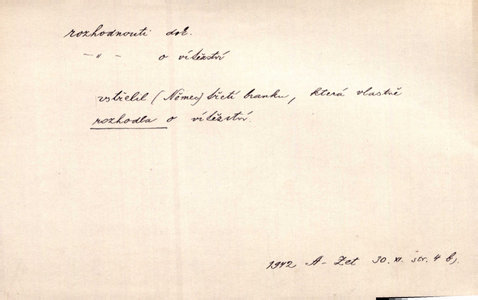 rozhodnouti dok.
—"— o vítězství
vstřelil (Němec) třetí branku, která vlastně
rozhodla o vítězství.
1942 A-Zet 30. XI. str. 4 b,